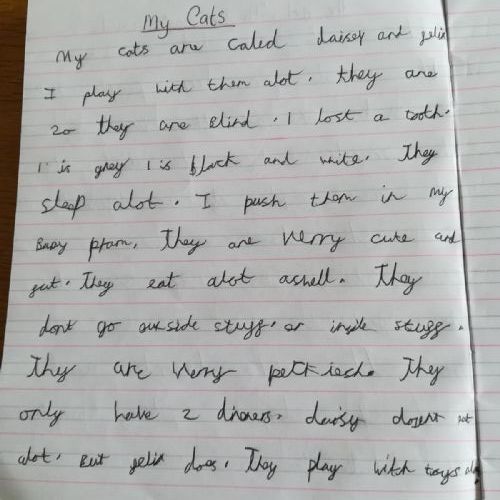 My Cats
My cats are caled daisey and felix
I play with them alot. they are
20 they are Blind. I lost a tooth.
1 is grey 1 is black and white. They
sleep alot. I push them in my
Baby pram. They are verry cute and
fat. They eat alot aswell. They
dont go outside stuff. or inside stuff.
They are verry petkish. They
only have 2 dinners. daisy dosent eat
alot. But felix does. They play witch toys